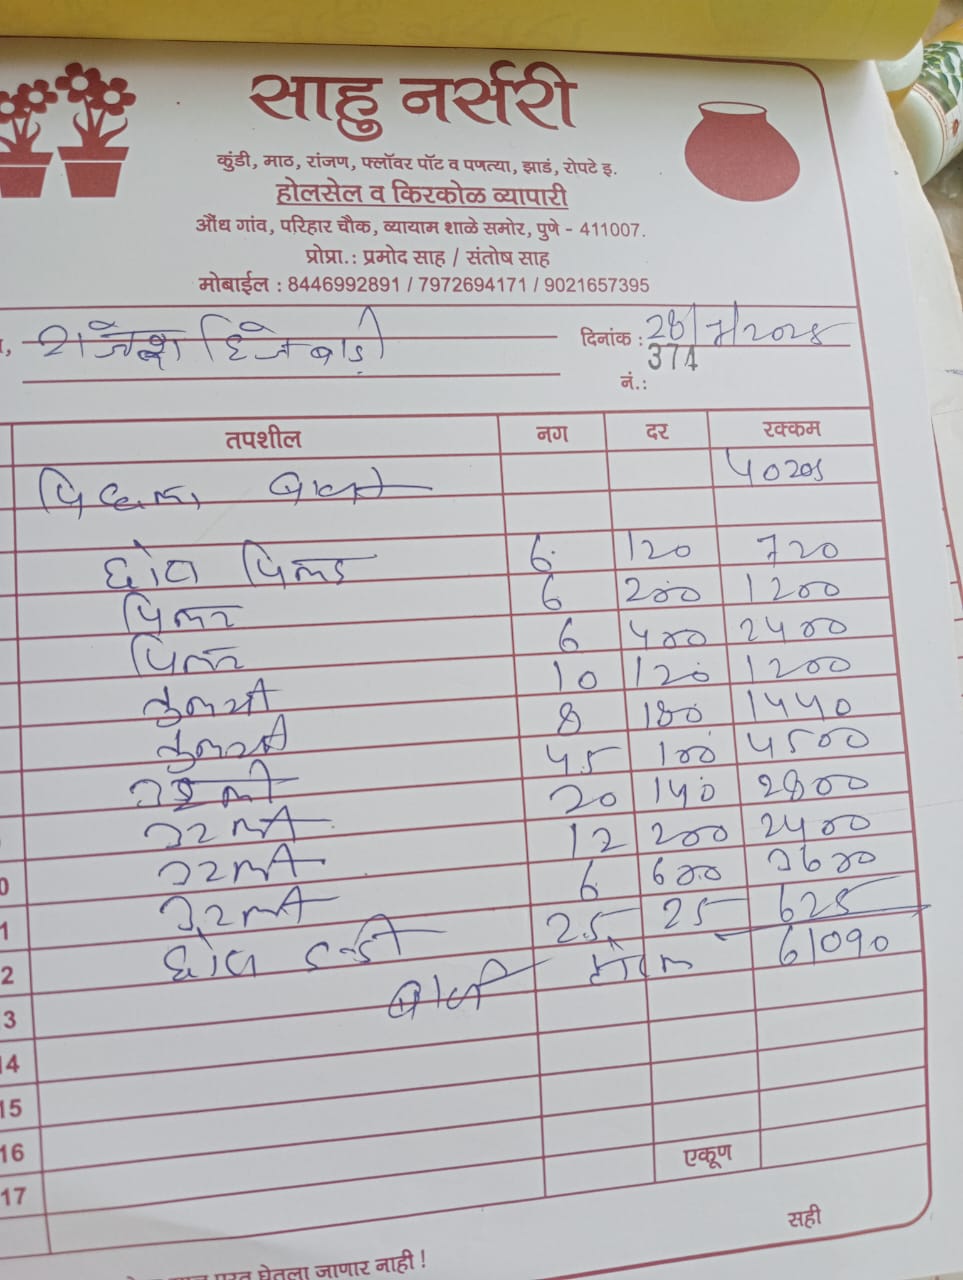 साहु नर्सरी
कुंडी, माठ, रांजण, फ्लॉवर पॉट व पणत्या, झाडं, रोपटे इ.
होलसेल व किरकोळ व्यापारी
औंध गांव, परिहार चौक, व्यायाम शाळे समोर, पुणे - 411007.
प्रोप्रा.: प्रमोद साह / संतोष साह
मोबाईल : 8446992891 / 7972694171 / 9021657395
दिनांक : 28/7/2025
नं.: 374
तपशील नग दर रक्कम
पिछला बाकी 40205
छोटा पिलर 6 120 720
पिलर 6 200 1200
पिलर 6 400 2400
तुलसी 10 120 1200
तुलसी 8 180 1440
45 100 4500
20 140 2800
12 200 2400
6 600 3600
0
1 छोटा 25 25 625
2 बाकी टोटल 61090
3
14
15
16
एकूण
17
सही
घेतला जाणार नाही !